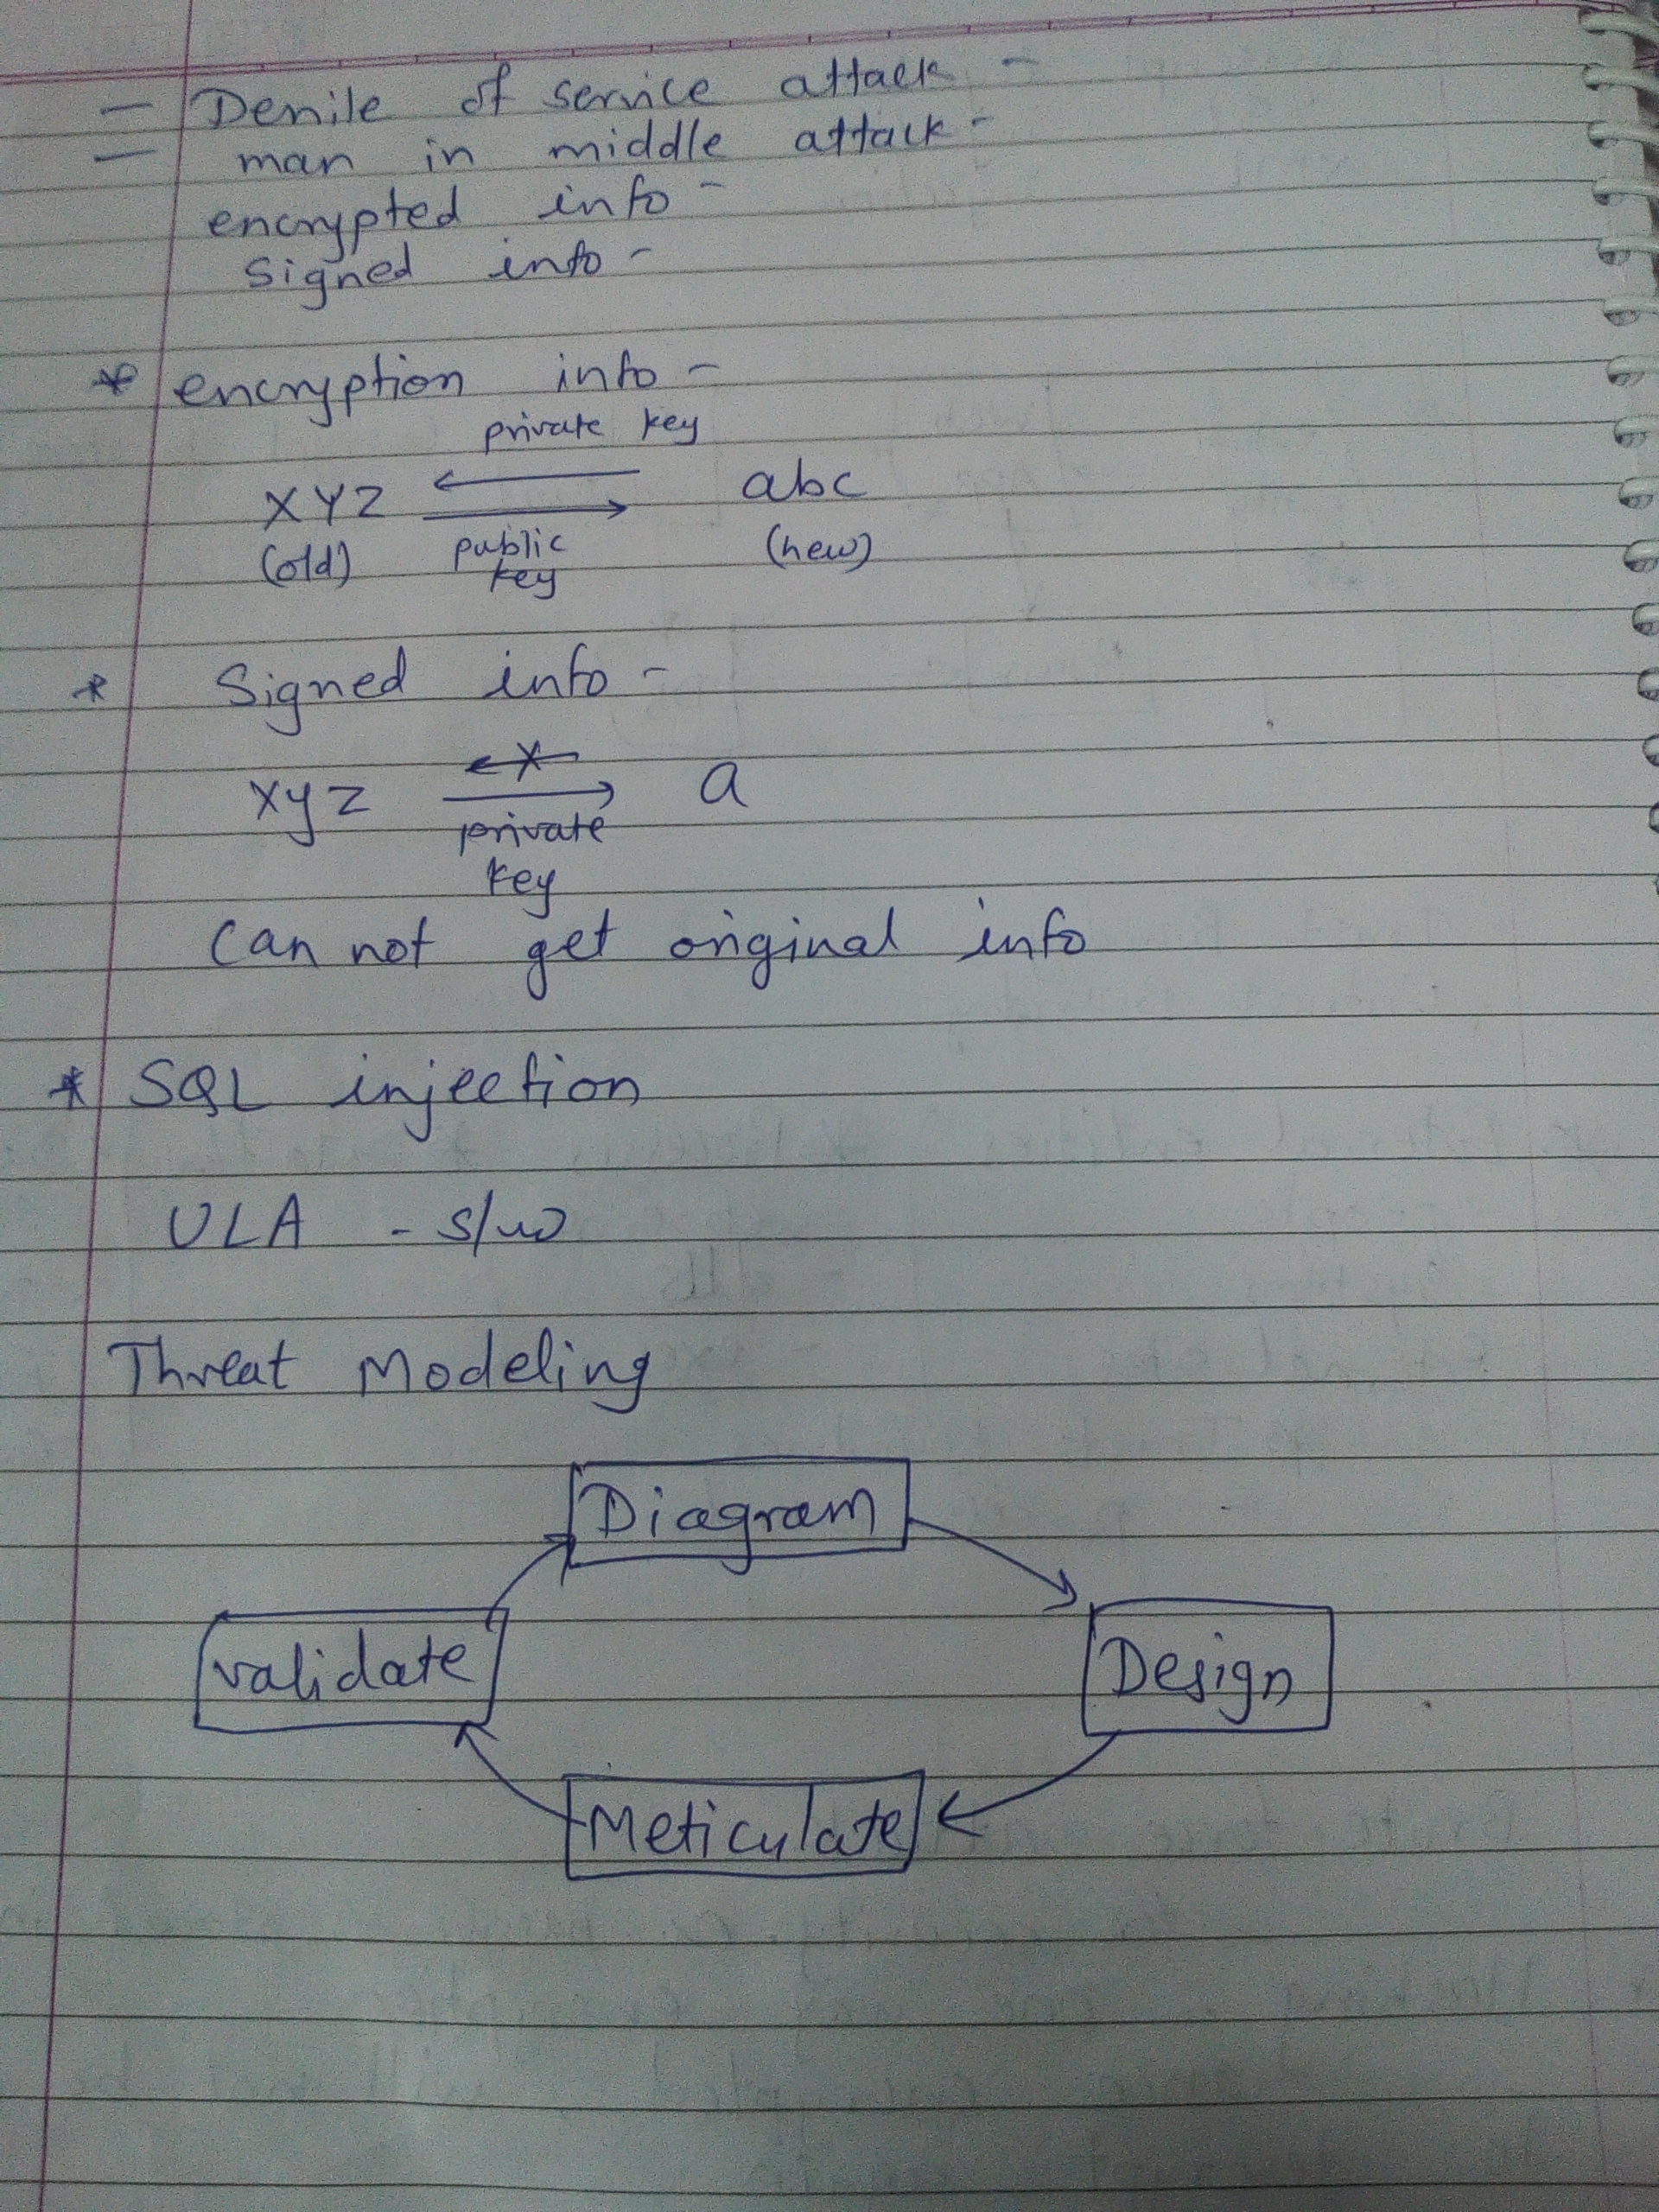 — Denile of service attack -
— man in middle attack -
encrypted info -
Signed info -
* encryption info -
private key
XYZ ← → abc
(old) public key (new)
* Signed info -
xyz → a
private
key
Can not get original info
* SQL injection
ULA - s/w
Threat Modeling
Diagram
validate Design
Meticulate